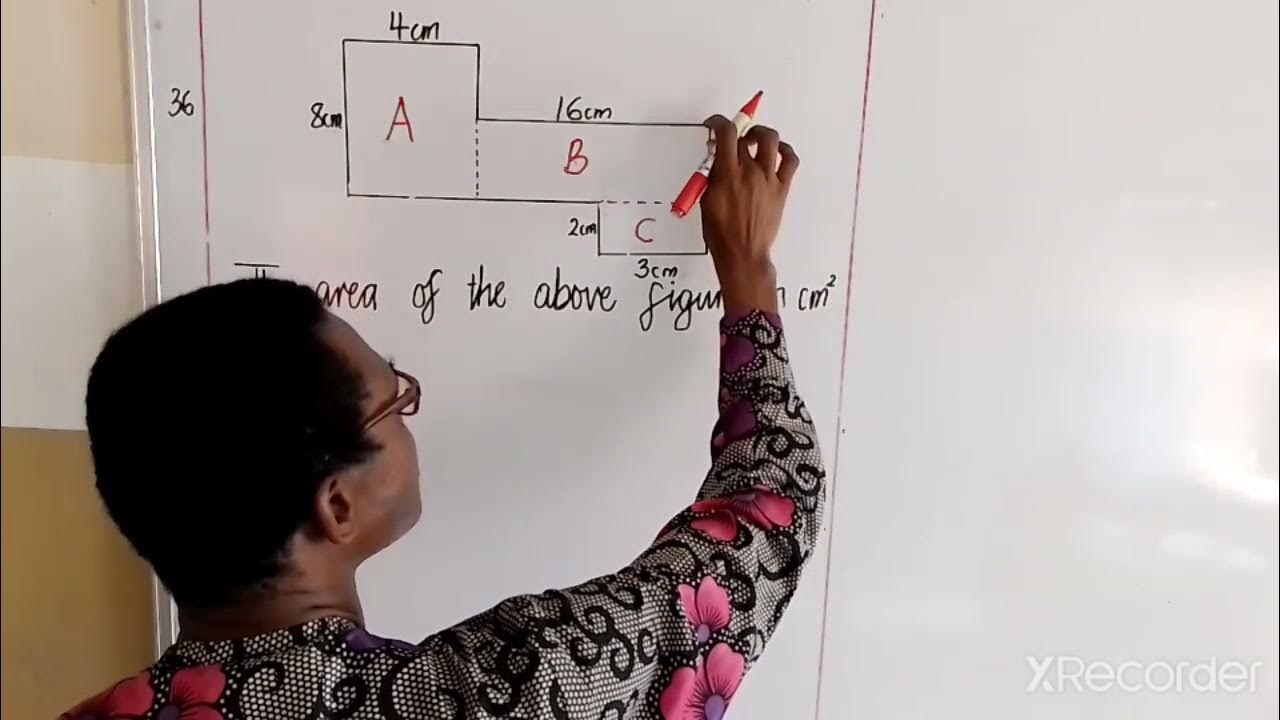 4cm
36
8cm
A
16cm
B
2cm
C
3cm
area of the above cm²
XRecorder